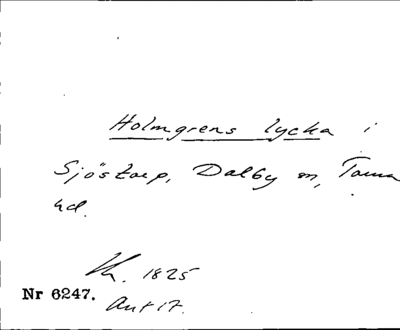 Holmgrens lycka i
Sjöstorp, Dalby sn, Torna
hd.
1825
Nr 6247.
Ant 17.